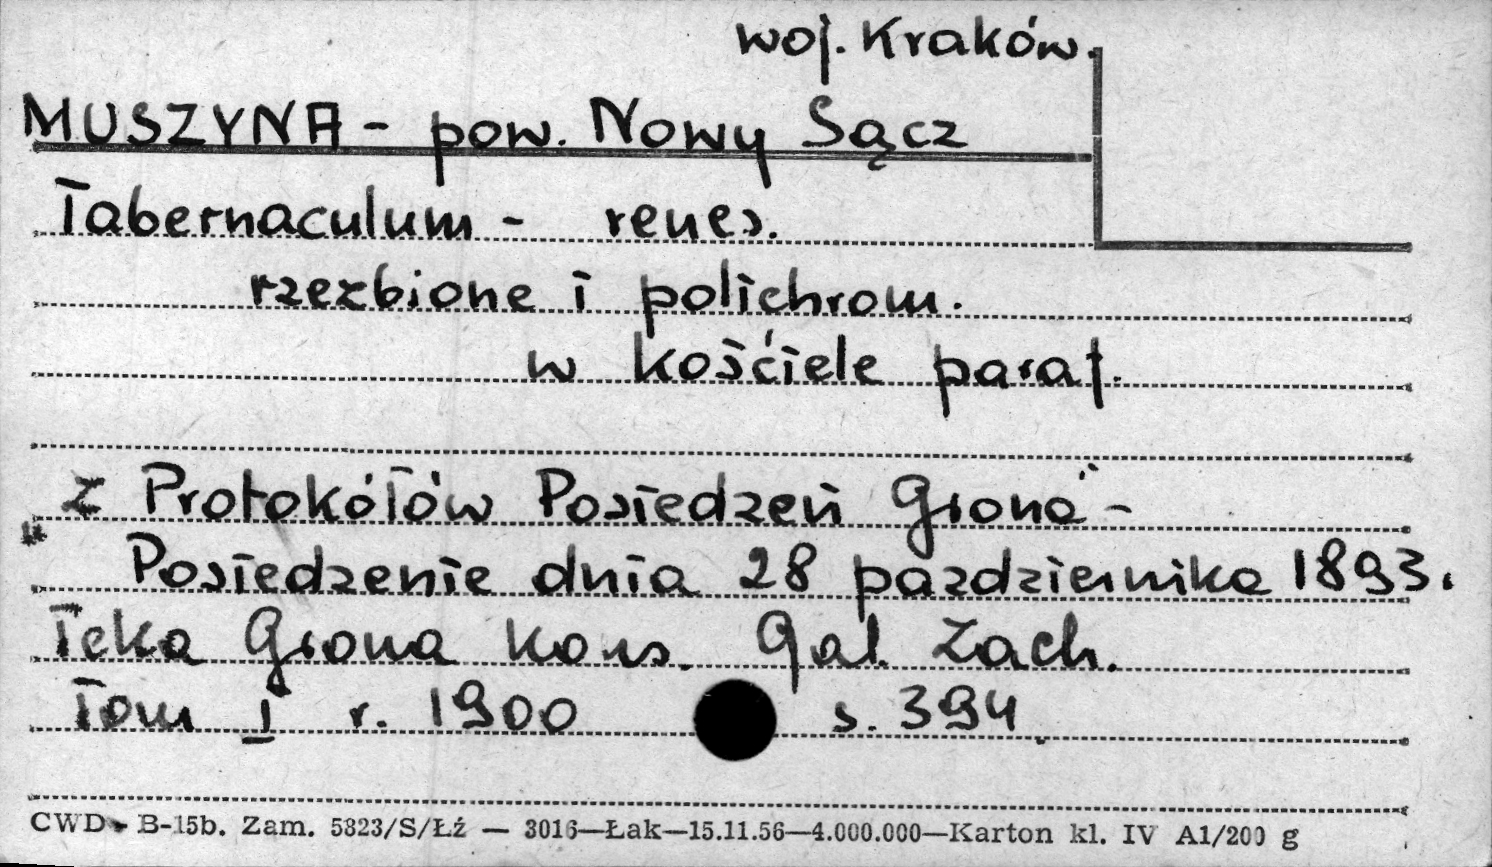 woj. Kraków.
MUSZYNA - pow. Nowy Sącz
Tabernaculum - renes.
rzezbione i polichrom.
w kościele paraf.
"Z Protokółów Posiedzeń Grona" -
Posiedzenie dnia 28 pazdziernika 1893.
Teka Grona Kons. Gal. Zach.
Tom I r. 1900 s. 394
CWD - B-15b. Zam. 5323/S/Łź — 3016—Łak—15.11.56—4.000.000—Karton kl. IV A1/200 g